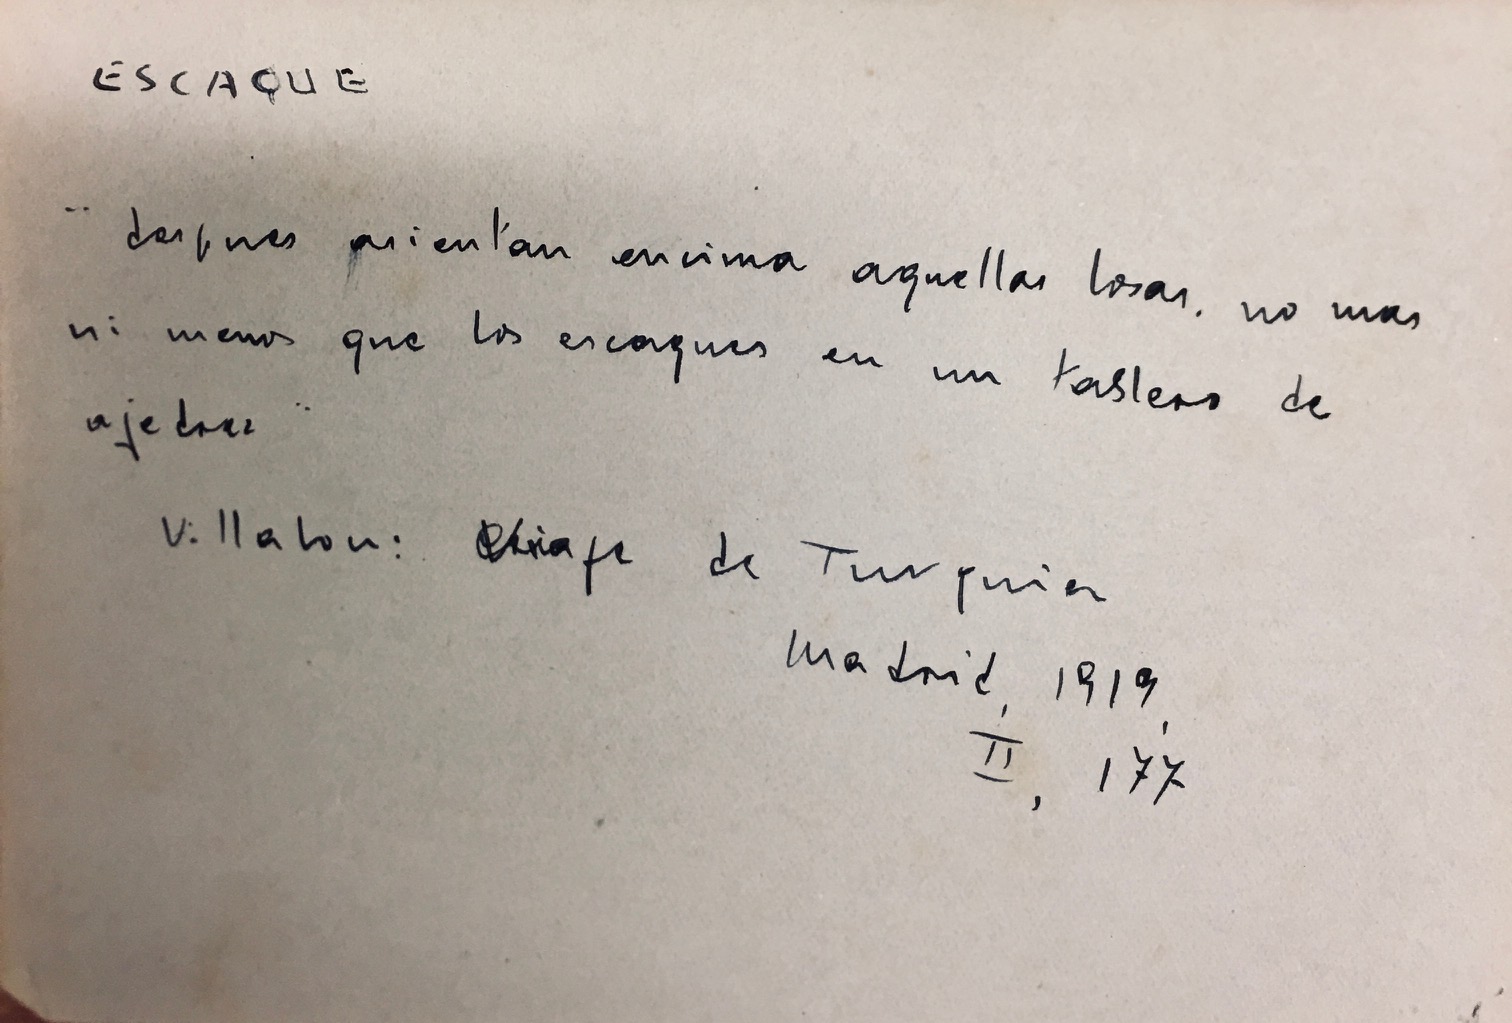 ESCAQUE
"despues asientan encima aquellas losas, no mas
ni menos que los escaques en un tablero de
ajedrez"
Villalon: Viage de Turquia
Madrid, 1919,
II, 177